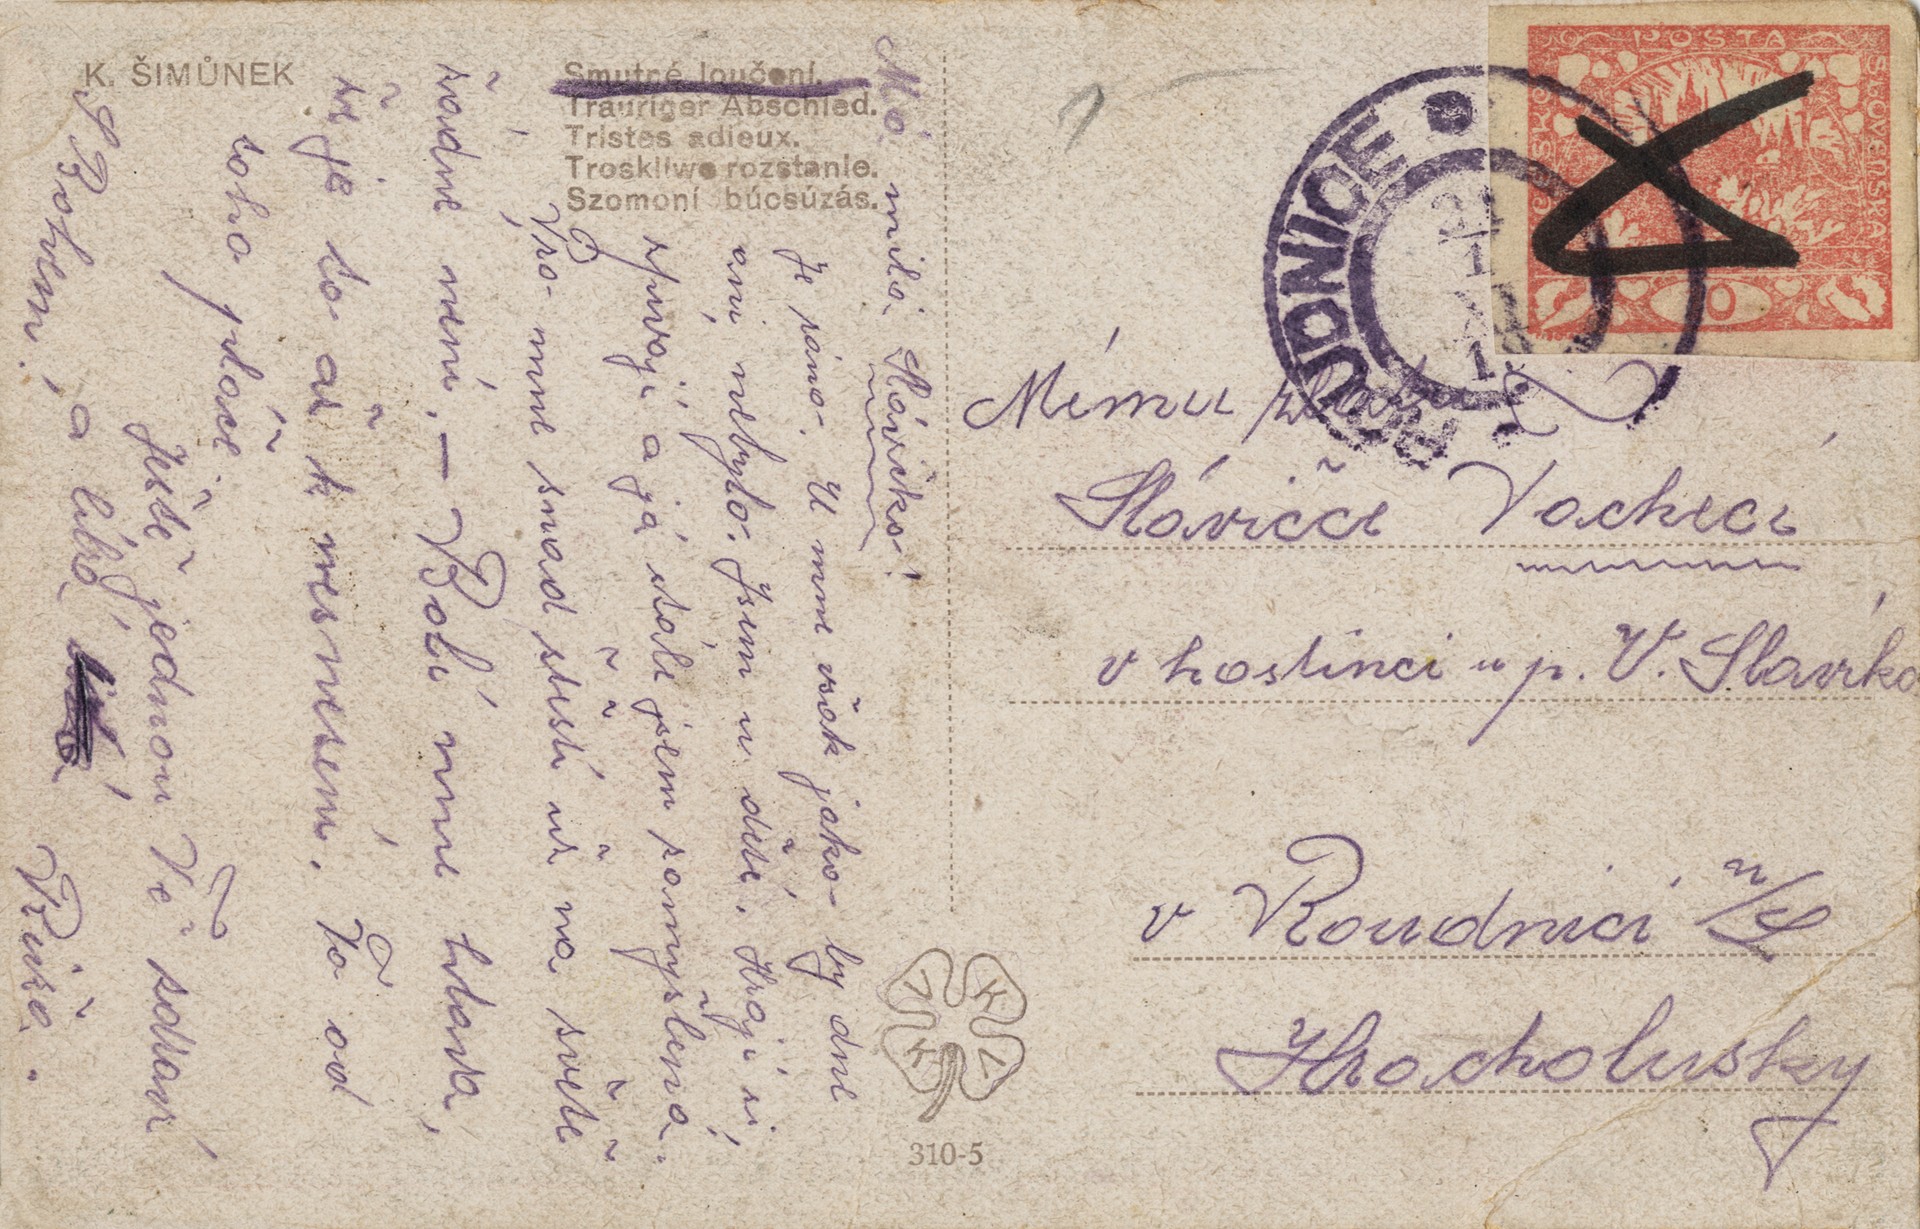 K. ŠIMŮNEK
Smutné loučení.
Trauriger Abschied.
Tristes adieux.
Troskliwe rozstanie.
Szomoní búcsúzás.
Má milá Slávičko!
Je ráno. U mne však jako by dne
ani nebylo. Jsem u děti. Hrají si,
zpívají a já stále jsem zamyšlena.
Pro mne snad štěstí už na světe
žádné není. – Bolí mne hlava,
že je to až k nesnesení. To od
toho pláče.
Ještě jednou Tě zdraví
S Bohem! a líbá
Růža.
POŠTA
ČESKO SLOVENSKÁ
ROUDNICE
21
XI
Mému
Slávičce Vackecí
v hostinci u p. V. Slavíka
v Roudnici n/L
Hracholusky
310-5